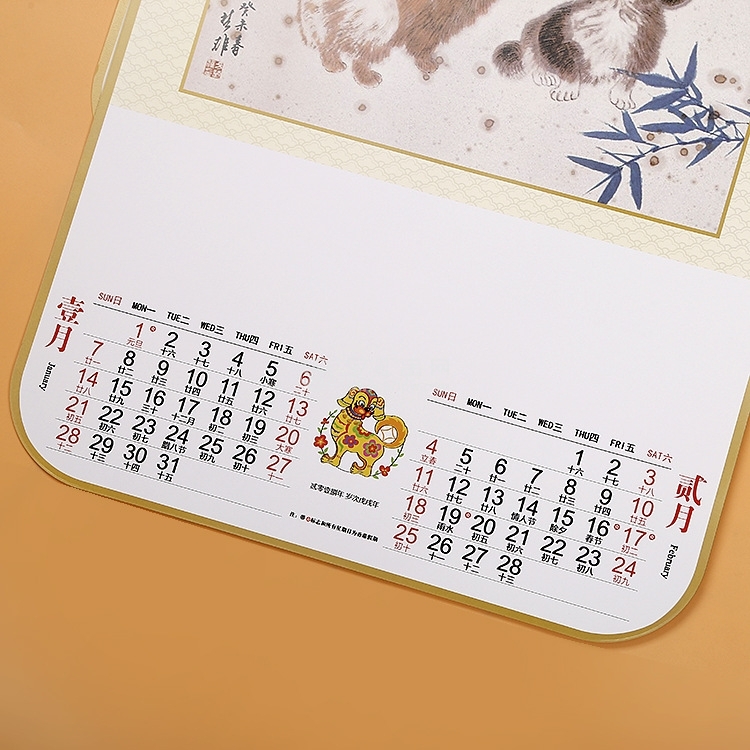 癸未春
楚雄
壹月
January
SUN日 MON一 TUE二 WED三 THU四 FRI五 SAT六
1 2 3 4 5 6
元旦 十六 十七 十八 小寒 二十
7 8 9 10 11 12 13
廿一 廿二 廿三 廿四 廿五 廿六 廿七
14 15 16 17 18 19 20
廿八 廿九 三十 十二月 初二 初三 大寒
21 22 23 24 25 26 27
初五 初六 初七 腊八节 初九 初十 十一
28 29 30 31
十二 十三 十四 十五
贰零壹捌年 岁次戊戌年
贰月
February
SUN日 MON一 TUE二 WED三 THU四 FRI五 SAT六
1 2 3
十六 十七 十八
4 5 6 7 8 9 10
立春 二十 廿一 廿二 廿三 廿四 廿五
11 12 13 14 15 16 17
廿六 廿七 廿八 情人节 除夕 春节 初二
18 19 20 21 22 23 24
初三 雨水 初五 初六 初七 初八 初九
25 26 27 28
初十 十一 十二 十三